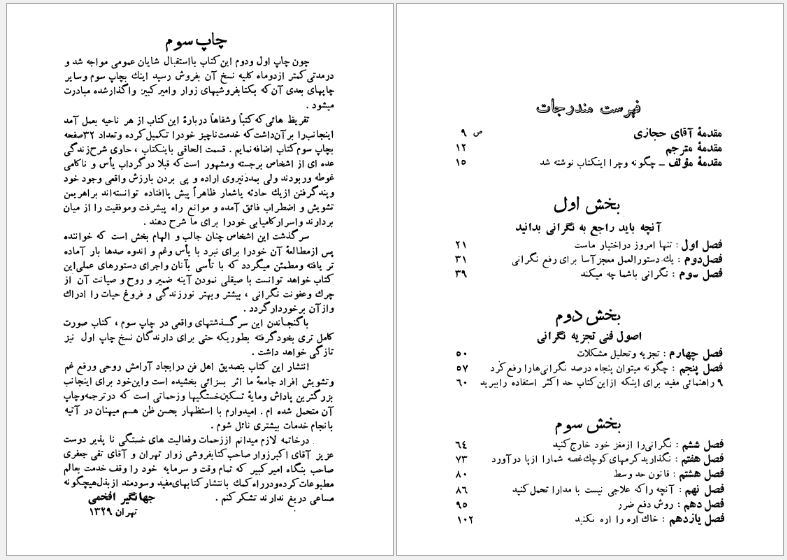 فهرست مندرجات
مقدمهٔ آقای حجازی ص ۹
مقدمهٔ مترجم ۱۲
مقدمهٔ مؤلف ــ چگونه وچرا اینکتاب نوشته شد ۱۵
بخش اول
آنچه باید راجع به نگرانی بدانید
فصل اول : تنها امروز دراختیار ماست ۲۱
فصل‌دوم : یك دستورالعمل معجزآسا برای رفع نگرانی ۳۱
فصل سوم : نگرانی باشما چه میکند ۳۹
بخش دوم
اصول فنی تجزیه نگرانی
فصل چهارم : تجزیه وتحلیل مشکلات ۵۰
فصل پنجم : چگونه میتوان پنجاه درصد نگرانی‌هارا رفع‌کرد ۵۷
۹ راهنمائی مفید برای اینکه ازاین‌کتاب حد اکثر استفاده رابببرید ۶۰
بخش سوم
فصل ششم : نگرانی‌را ازمغز خود خارج‌کنید ۶۴
فصل هفتم : نگذارید کرمهای‌کوچك غصه شمارا ازپا درآورد ۷۳
فصل هشتم : قانون حد وسط ۸۰
فصل نهم : آنچه راکه علاجی نیست با مدارا تحمل‌کنید ۸۶
فصل دهم : روش دفع ضرر ۹۵
فصل یازدهم : خاك اره را اره نکنید ۱۰۲
چاپ سوم
چون چاپ اول ودوم این‌کتاب بااستقبال شایان عمومی مواجه شد و
درمدتی‌کمتر ازدوماه کلیه نسخ آن بفروش رسید اینك بچاپ سوم وسایر
چاپهای بعدی آن‌که بکتابفروشیهای زوار وامیرکبیر واگذارشده مبادرت
میشود .
تقریظ هائی‌که کتباً وشفاهاً دربارهٔ این‌کتاب از هر ناحیه بعمل آمد
اینجانب‌را برآن‌داشت‌که خدمت‌ناچیز خودرا تکمیل‌کرده وتعداد ۳۲صفحه
بچاپ سوم‌کتاب اضافه‌نمایم . قسمت الحاقی باینکتاب ، حاوی شرح‌زندگی
عده ای از اشخاص برجسته ومشهور است‌که قبلا درگرداب یأس و ناکامی
غوطه وربودند ولی بمددنیروی اراده و پی بردن بارزش واقعی وجود خود
وپندگرفتن ازیك حادثه باشمار ظاهراً پیش پاافتاده توانسته‌اند براهریمن
تشویش و اضطراب فائق آمده و موانع راه پیشرفت وموفقیت را از میان
بردارند واسرارکامیابی خودرا برای ما شرح دهند .
سرگذشت این اشخاص چنان جالب و الهام بخش است که خواننده
پس ازمطالعهٔ آن خودرا برای نبرد با یأس وغم و اندوه صدها بار آماده
تر یافته ومطمئن میگردد که با تأسی بآنان واجرای دستورهای عملی‌این
کتاب خواهد توانست با صیقلی نمودن آینه ضمیر و روح و صیانت آن از
چرك وعفونت نگرانی ، بیشتر وبهتر نورزندگی و فروغ حیات را ادراك
وازآن برخوردارگردد .
باگنجاندن این سرگـذشتهای واقعی در چاپ سوم ، کتاب صورت
کامل تری بخودگرفته بطوریکه حتی برای دارندگان نسخ چاپ اول نیز
تازگی خواهد داشت .
انتشار این کتاب بتصدیق اهل فن درایجاد آرامش روحی ورفع غم
وتشویش افراد جامعهٔ ما اثر بسزائی بخشیده است واین‌خود برای اینجانب
بزرگترین پاداش ومایهٔ تسکین‌خستگیها وزحماتی است که درترجمه‌وچاپ
آن متحمل شده ام . امیدوارم با استظهار بحسن ظن هم میهنان در آتیه
بانجام خدمات بیشتری نائل شوم .
درخاتمه لازم میدانم اززحمات وفعالیت های خستگی نا پذیر دوست
عزیز آقای اکبرزوار صاحب‌کتابفروشی زوار تهران و آقای تقی جعفری
صاحب بنگاه امیرکبیر که تمام وقت و سرمایه خود را وقف خدمت بعالم
مطبوعات‌کرده‌ودرراه‌کمك باانتشار کتابهای‌مفید وسودمند ازبذل‌هیچگونه
مساعی دریغ ندارند تشکرکنم .
جهانگیر افخمی
تهران ۱۳۲۹